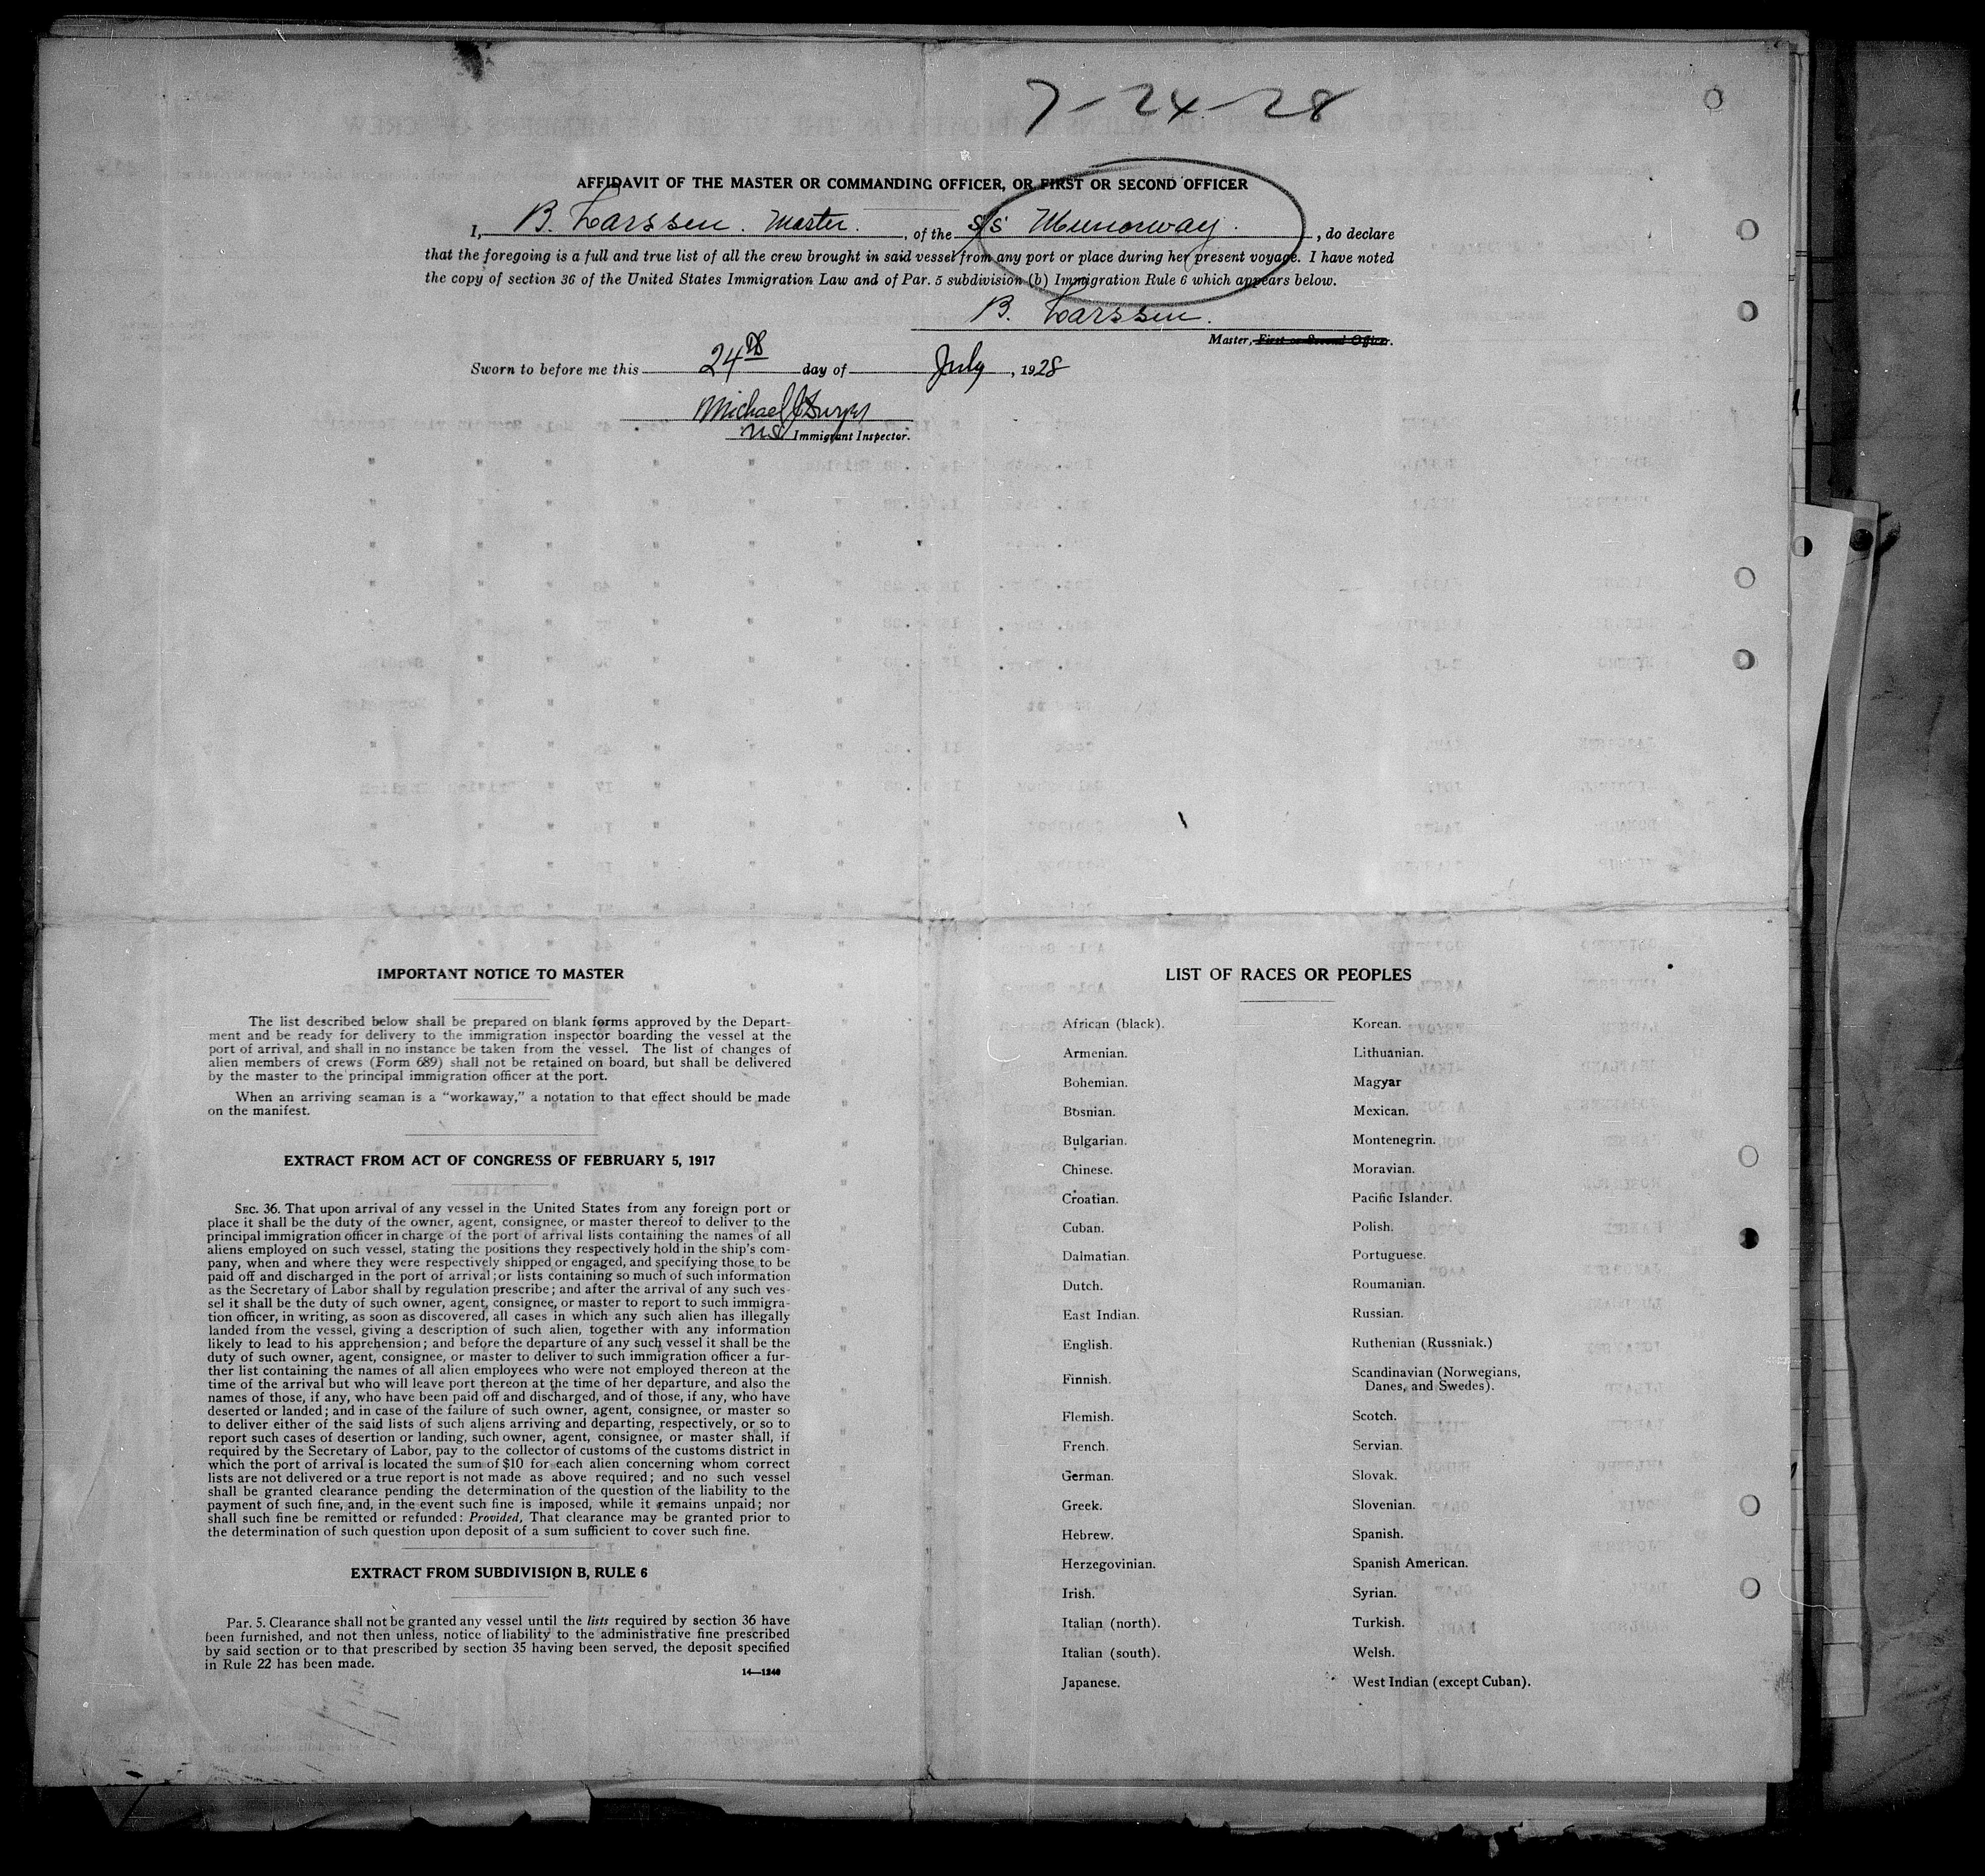 7-24-28
AFFIDAVIT OF THE MASTER OR COMMANDING OFFICER, OR FIRST OR SECOND OFFICER
I, B. Larssen. Master. , of the S/S Munorway. , do declare
that the foregoing is a full and true list of all the crew brought in said vessel from any port or place during her present voyage. I have noted
the copy of section 36 of the United States Immigration Law and of Par. 5 subdivision (b) Immigration Rule 6 which appears below.
B. Larssen.
Master, First or Second Officer.
Sworn to before me this 24th day of July, 1928
Michael J
US Immigrant Inspector.
IMPORTANT NOTICE TO MASTER
The list described below shall be prepared on blank forms approved by the Depart-
ment and be ready for delivery to the immigration inspector boarding the vessel at the
port of arrival, and shall in no instance be taken from the vessel. The list of changes of
alien members of crews (Form 689) shall not be retained on board, but shall be delivered
by the master to the principal immigration officer at the port.
When an arriving seaman is a "workaway," a notation to that effect should be made
on the manifest.
EXTRACT FROM ACT OF CONGRESS OF FEBRUARY 5, 1917
SEC. 36. That upon arrival of any vessel in the United States from any foreign port or
place it shall be the duty of the owner, agent, consignee, or master thereof to deliver to the
principal immigration officer in charge of the port of arrival lists containing the names of all
aliens employed on such vessel, stating the positions they respectively hold in the ship's com-
pany, when and where they were respectively shipped or engaged, and specifying those to be
paid off and discharged in the port of arrival; or lists containing so much of such information
as the Secretary of Labor shall by regulation prescribe; and after the arrival of any such ves-
sel it shall be the duty of such owner, agent, consignee, or master to report to such immigra-
tion officer, in writing, as soon as discovered, all cases in which any such alien has illegally
landed from the vessel, giving a description of such alien, together with any information
likely to lead to his apprehension; and before the departure of any such vessel it shall be the
duty of such owner, agent, consignee, or master to deliver to such immigration officer a fur-
ther list containing the names of all alien employees who were not employed thereon at the
time of the arrival but who will leave port thereon at the time of her departure, and also the
names of those, if any, who have been paid off and discharged, and of those, if any, who have
deserted or landed; and in case of the failure of such owner, agent, consignee, or master so
to deliver either of the said lists of such aliens arriving and departing, respectively, or so to
report such cases of desertion or landing, such owner, agent, consignee, or master shall, if
required by the Secretary of Labor, pay to the collector of customs of the customs district in
which the port of arrival is located the sum of $10 for each alien concerning whom correct
lists are not delivered or a true report is not made as above required; and no such vessel
shall be granted clearance pending the determination of the question of the liability to the
payment of such fine, and, in the event such fine is imposed, while it remains unpaid; nor
shall such fine be remitted or refunded: Provided, That clearance may be granted prior to
the determination of such question upon deposit of a sum sufficient to cover such fine.
EXTRACT FROM SUBDIVISION B, RULE 6
Par. 5. Clearance shall not be granted any vessel until the lists required by section 36 have
been furnished, and not then unless, notice of liability to the administrative fine prescribed
by said section or to that prescribed by section 35 having been served, the deposit specified
in Rule 22 has been made.
14—1240
LIST OF RACES OR PEOPLES
African (black).
Armenian.
Bohemian.
Bosnian.
Bulgarian.
Chinese.
Croatian.
Cuban.
Dalmatian.
Dutch.
East Indian.
English.
Finnish.
Flemish.
French.
German.
Greek.
Hebrew.
Herzegovinian.
Irish.
Italian (north).
Italian (south).
Japanese.
Korean.
Lithuanian.
Magyar
Mexican.
Montenegrin.
Moravian.
Pacific Islander.
Polish.
Portuguese.
Roumanian.
Russian.
Ruthenian (Russniak.)
Scandinavian (Norwegians,
Danes, and Swedes).
Scotch.
Servian.
Slovak.
Slovenian.
Spanish.
Spanish American.
Syrian.
Turkish.
Welsh.
West Indian (except Cuban).